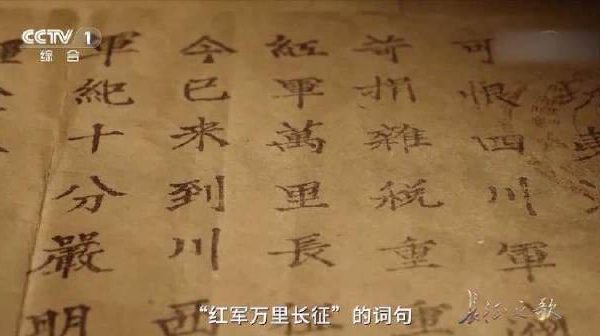 CCTV 1
综合
可恨四川軍
苛捐雜稅重
紅軍萬里長
今已來到川西
軍紀十分嚴明
“红军万里长征”的词句
长征之歌